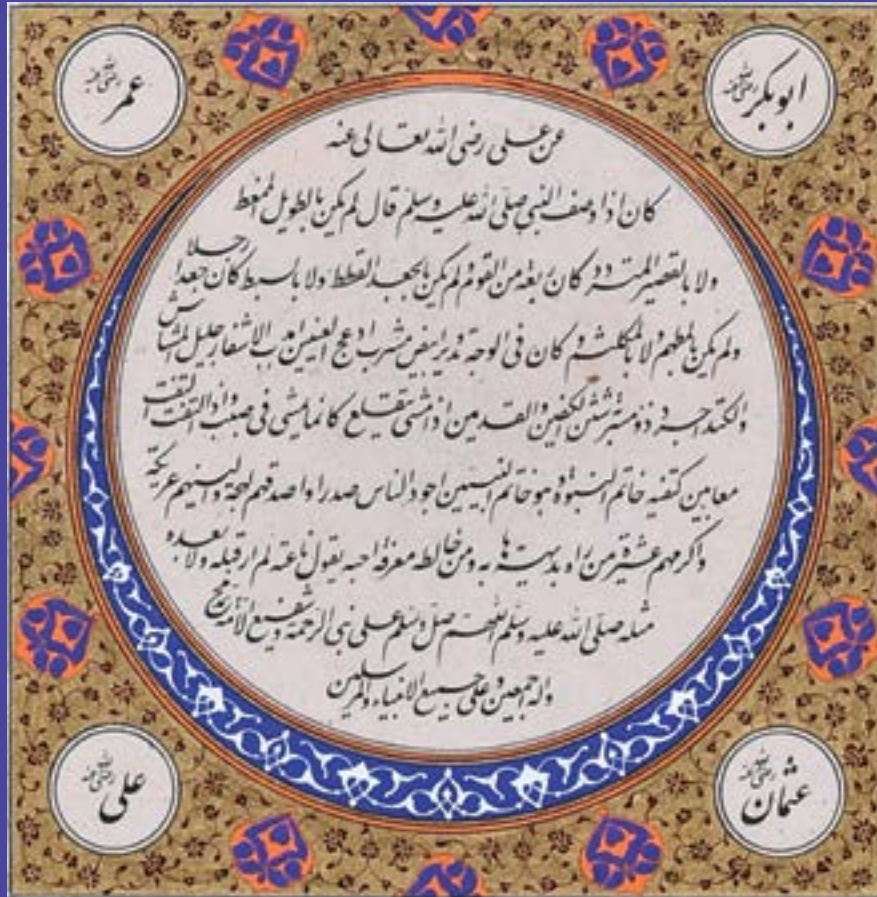 ابوبكر رضى الله عنه
عمر رضى الله عنه
عن على رضى الله تعالى عنه
كان اذا وصف النبى صلى الله عليه وسلم قال لم يكن بالطويل الممغط
ولا بالقصير المتردد كان ربعة من القوم ولم يكن بالجعد القطط ولا بالسبط كان جعدا رجلا
ولم يكن بالمطهم ولا بالمكلثم وكان فى الوجه تدوير ابيض مشرب ادعج العينين اهدب الاشفار جليل المشاش
والكتد اجرد ذو مسربة شثن الكفين والقدمين اذا مشى تقلع كانما يمشى فى صبب واذا التفت التفت
معا بين كتفيه خاتم النبوة وهو خاتم النبيين اجود الناس صدرا واصدقهم لهجة والينهم عريكة
واكرمهم عشيرة من راه بديهة هابه ومن خالطه معرفة احبه يقول ناعته لم ار قبله ولا بعده
مثله صلى الله عليه وسلم اللهم صل وسلم على نبى الرحمة وشفيع الامة
واله اجمعين وعلى جميع الانبياء والمرسلين
عثمان رضى الله عنه
على رضى الله عنه